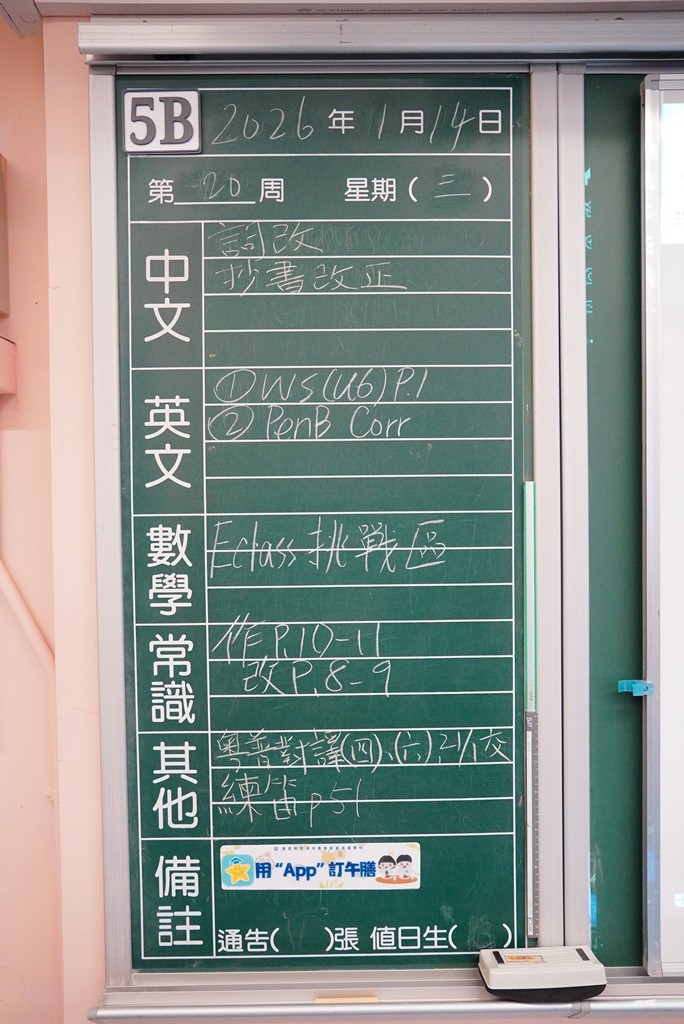 5B 2026年1月14日
第20周 星期(三)
中文
詞改
抄書改正
英文
①WS(U6)P.1
②PenB Corr
數學
Eclass挑戰區
常識
作P.10-11
改P.8-9
其他
粵普對譯(四)、(六),21/1交
練笛p51
備註
用“App”訂午膳
通告( )張 值日生( )